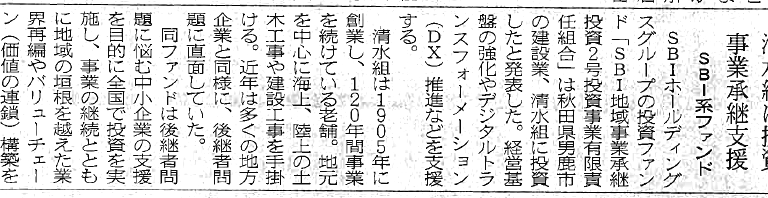 事業承継支援
SBI系ファンド
SBIホールディング
スグループの投資ファン
ド「SBI地域事業承継
投資2号投資事業有限責
任組合」は秋田県男鹿市
の建設業、清水組に投資
したと発表した。経営基
盤の強化やデジタルトラ
ンスフォーメーション
（DX）推進などを支援
する。
清水組は1905年に
創業し、120年間事業
を続けている老舗。地元
を中心に海上、陸上の土
木工事や建設工事を手掛
ける。近年は多くの地方
企業と同様に、後継者問
題に直面していた。
同ファンドは後継者問
題に悩む中小企業の支援
を目的に全国で投資を実
施し、事業の継続ととも
に地域の垣根を越えた業
界再編やバリューチェー
ン（価値の連鎖）構築を